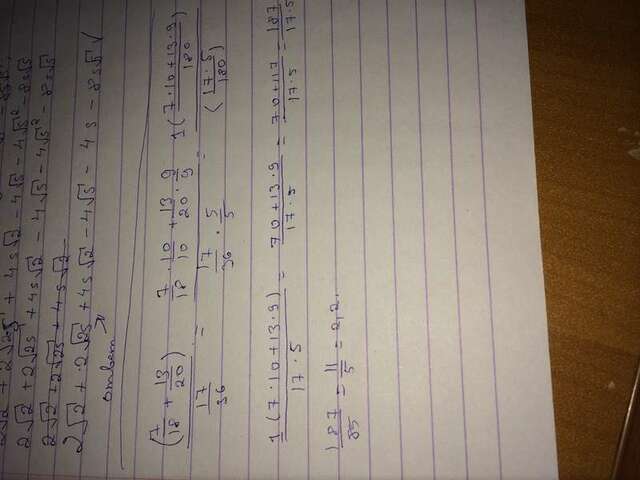 2√2 + 2√25 + 4s√2 - 4√5 - 4√5² - 8s√5
2√2 + 2√25 + 4s√2
2√2 + 2√25 + 4s√2 - 4√5 - 4s - 8s√5
ответ
(7/18 + 13/20) / (17/36) = (7/18 · 10/10 + 13/20 · 9/9) / (17/36 · 5/5) = 1(7·10+13·9 / 180) / (17·5 / 180)
1(7·10+13·9) / 17·5 = 70+13·9 / 17·5 = 70+17 / 17·5 = 187 / 17·5
187/85 = 11/5 = 2,2.